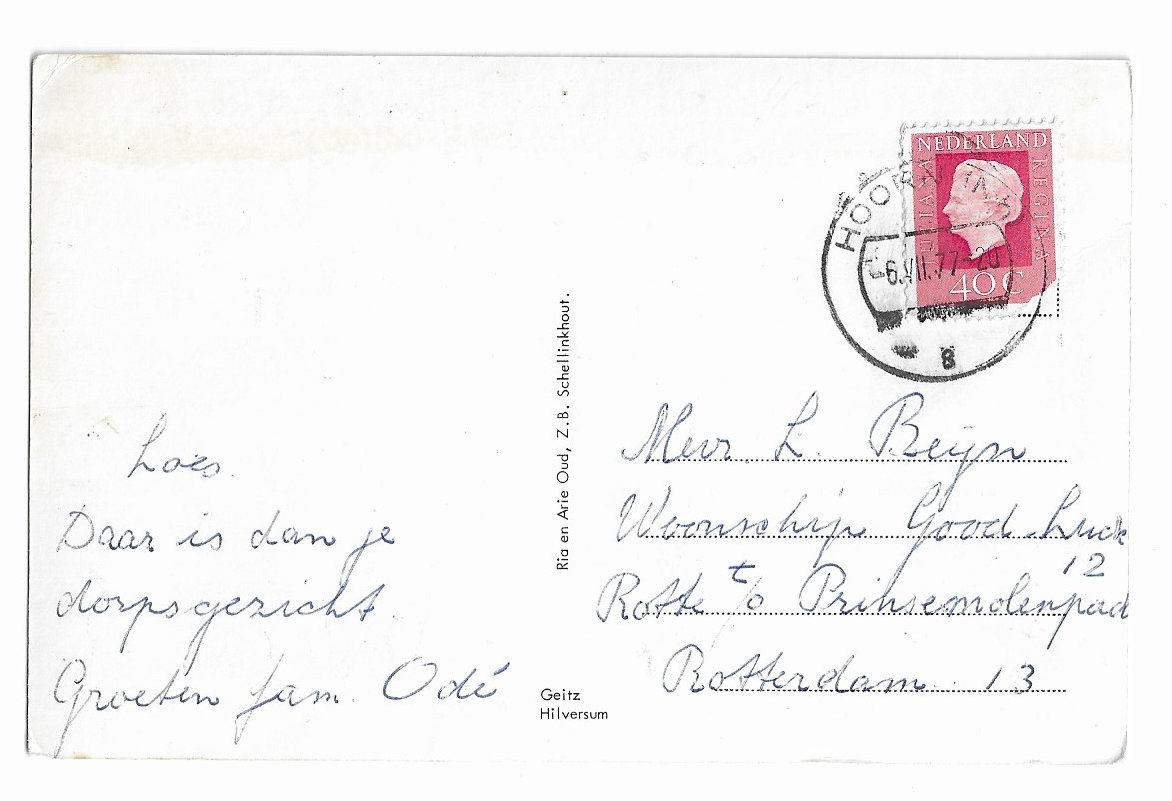 Loes.
Daar is dan je
dorpsgezicht.
Groeten fam. Odé
Ria en Arie Oud, Z.B. Schellinkhout.
Geitz
Hilversum
NEDERLAND
JULIANA REGINA
40 C
HOORN
6.VII.77-20
8
Mevr. L. Beijn
Woonschip Good-Luck
12
Rotte t/o Prinsemolenpad
Rotterdam 13